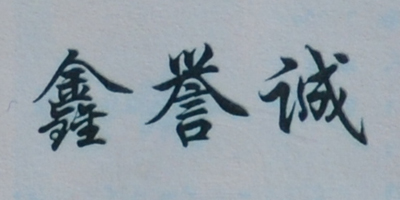 鑫誉诚